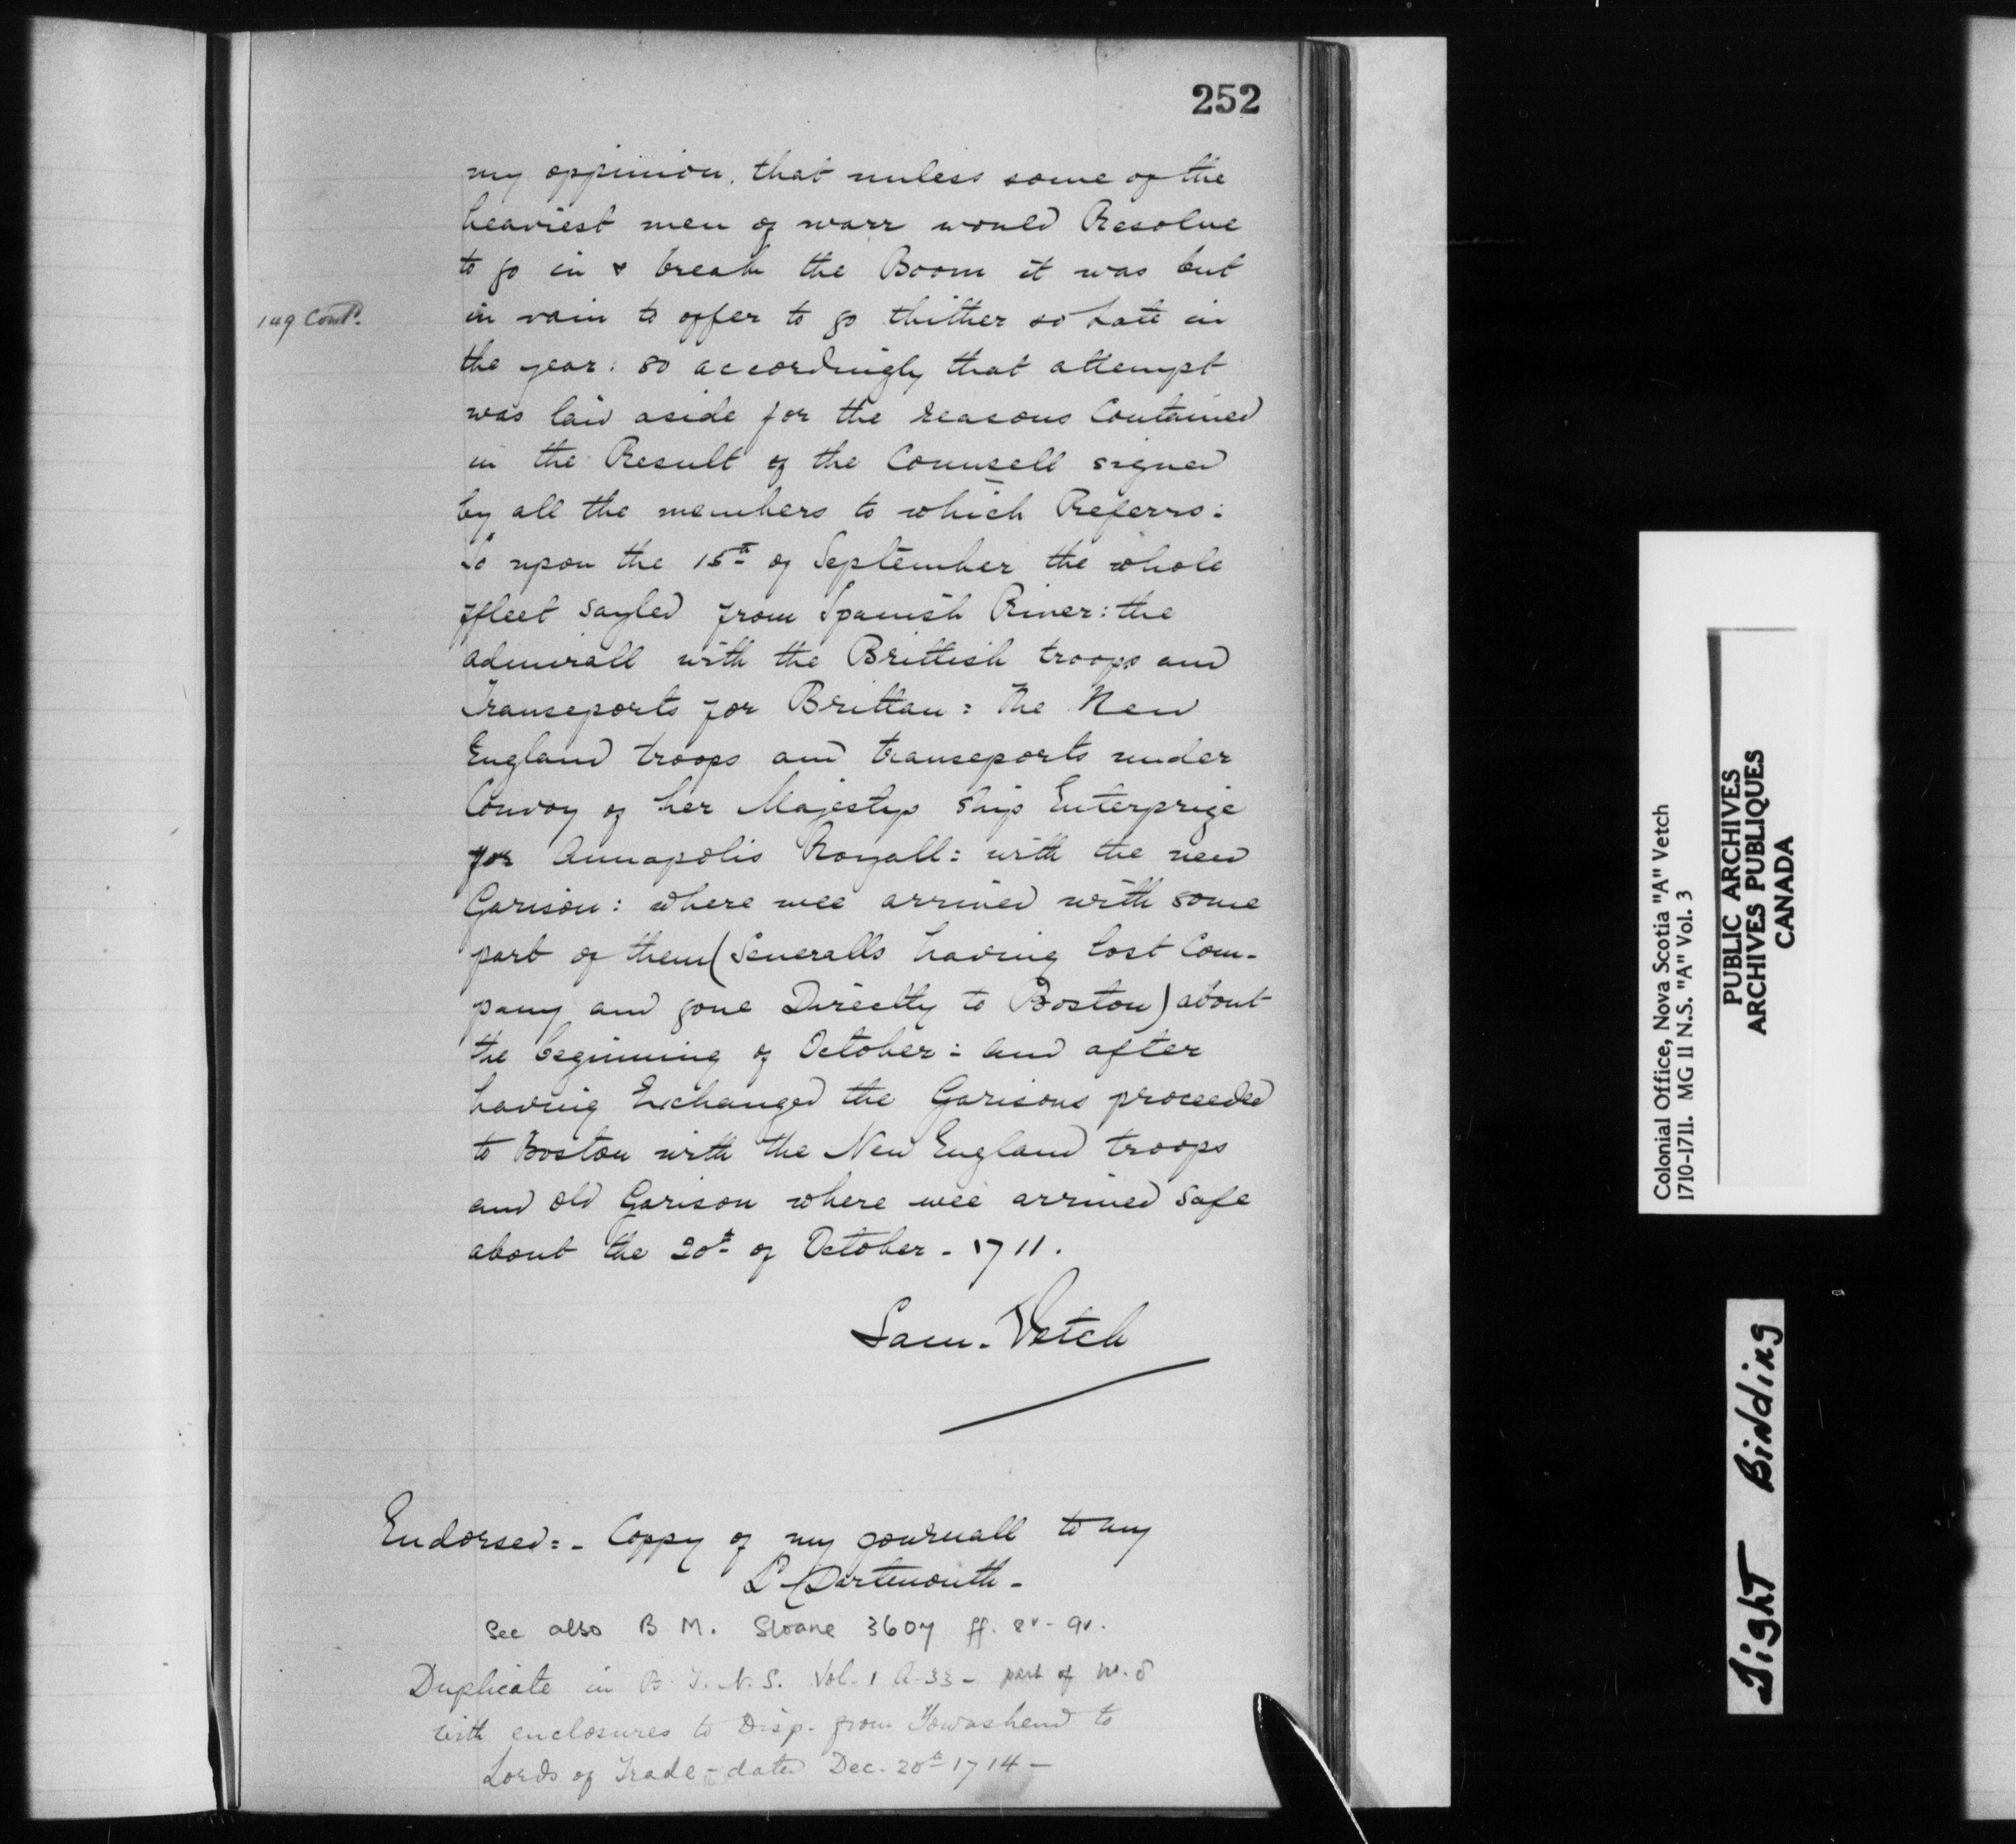 252
my oppinion, that unless some of the
heaviest men of warr would Resolve
to go in & break the Boom it was but
149 Contd.
in vain to offer to go thither so Late in
the year: so accordingly that attempt
was laid aside for the reasons Contained
in the Result of the Counsell signed
by all the members to which Referrs:
So upon the 15th of September the whole
ffleet sayled from Spanish River: the
admirall with the Brittish troops and
Transeports for Brittan: The New
England troops and transeports under
Convoy of her Majestys ship Enterprize
for Annapolis Royall: with the new
Garison: where wee arrived with some
part of them (Severalls having lost Com-
pany and gone Directly to Boston) about
the beginning of October: and after
having Exchanged the Garisons proceeded
to Boston with the New England troops
and old Garison where wee arrived safe
about the 20th of October - 1711.
Sam. Vetch
Endorsed:- Coppy of my journall to my
Ld Dartmouth -
See also B M. Sloane 3607 ff. 8v - 9v.
Duplicate in B. T. N. S. Vol. 1 A-33 - part of no. 8
with enclosures to Disp. from Townshend to
Lords of Trade - dated Dec. 20th 1714 -
Colonial Office, Nova Scotia "A" Vetch
1710-1711. MG 11 N.S. "A" Vol. 3
PUBLIC ARCHIVES
ARCHIVES PUBLIQUES
CANADA
Tight Binding